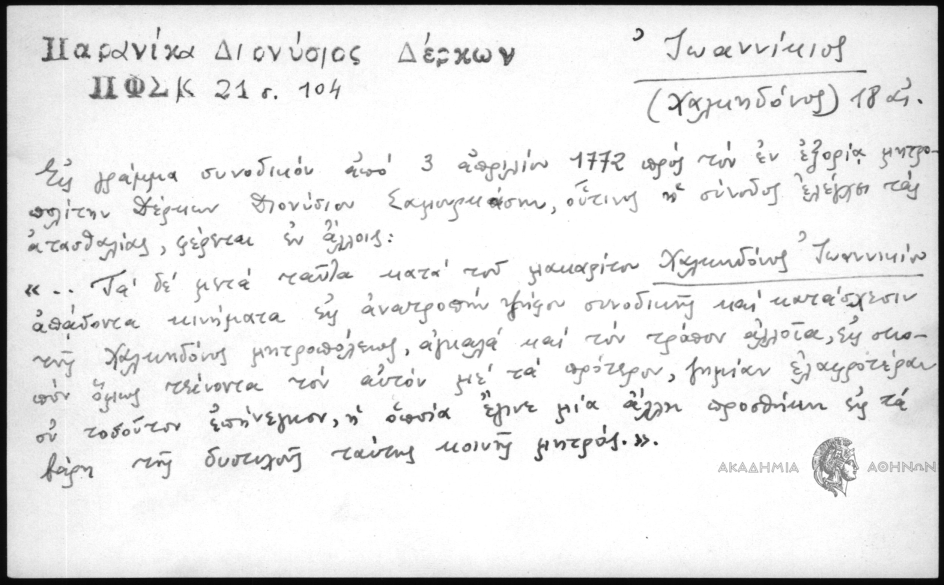 Παρανίκα Διονύσιος Δέρκων
ΠΦΣΚ 21 σ. 104
Ἰωαννίκιος
(Χαλκηδόνος) 18 αἰ.
Εἰς γράμμα συνοδικόν ἀπό 3 ἀπριλίου 1772 πρός τόν ἐν ἐξορίᾳ μητρο-
πολίτην Δέρκων Διονύσιον Σαμουρκάσην, οὗτινος ἡ σύνοδος ἐλέγχει τάς
ἀτασθαλίας, φέρεται ἐν ἄλλοις:
«.. Τά δέ μετά ταῦτα κατά τοῦ μακαρίτου Χαλκηδόνος Ἰωαννικίου
ἀπᾴδοντα κινήματα εἰς ἀνατροπήν ψήφου συνοδικῆς καί κατάσχεσιν
τῆς Χαλκηδόνος μητροπόλεως, ἀγκαλά καί τόν τρόπον ἀλλοῖα, εἰς σκο-
πόν ὅμως τείνοντα τόν αὐτόν μέ τά πρότερον, ζημίαν ἐλαφροτέραν
οὐ τοσοῦτον ἐπήνεγκον, ἡ ὁποία ἔγινε μία ἄλλη προσθήκη εἰς τά
βάρη τῆς δυστυχοῦς ταύτης κοινῆς μητρός.».
ΑΚΑΔΗΜΙΑ ΑΘΗΝΩΝ